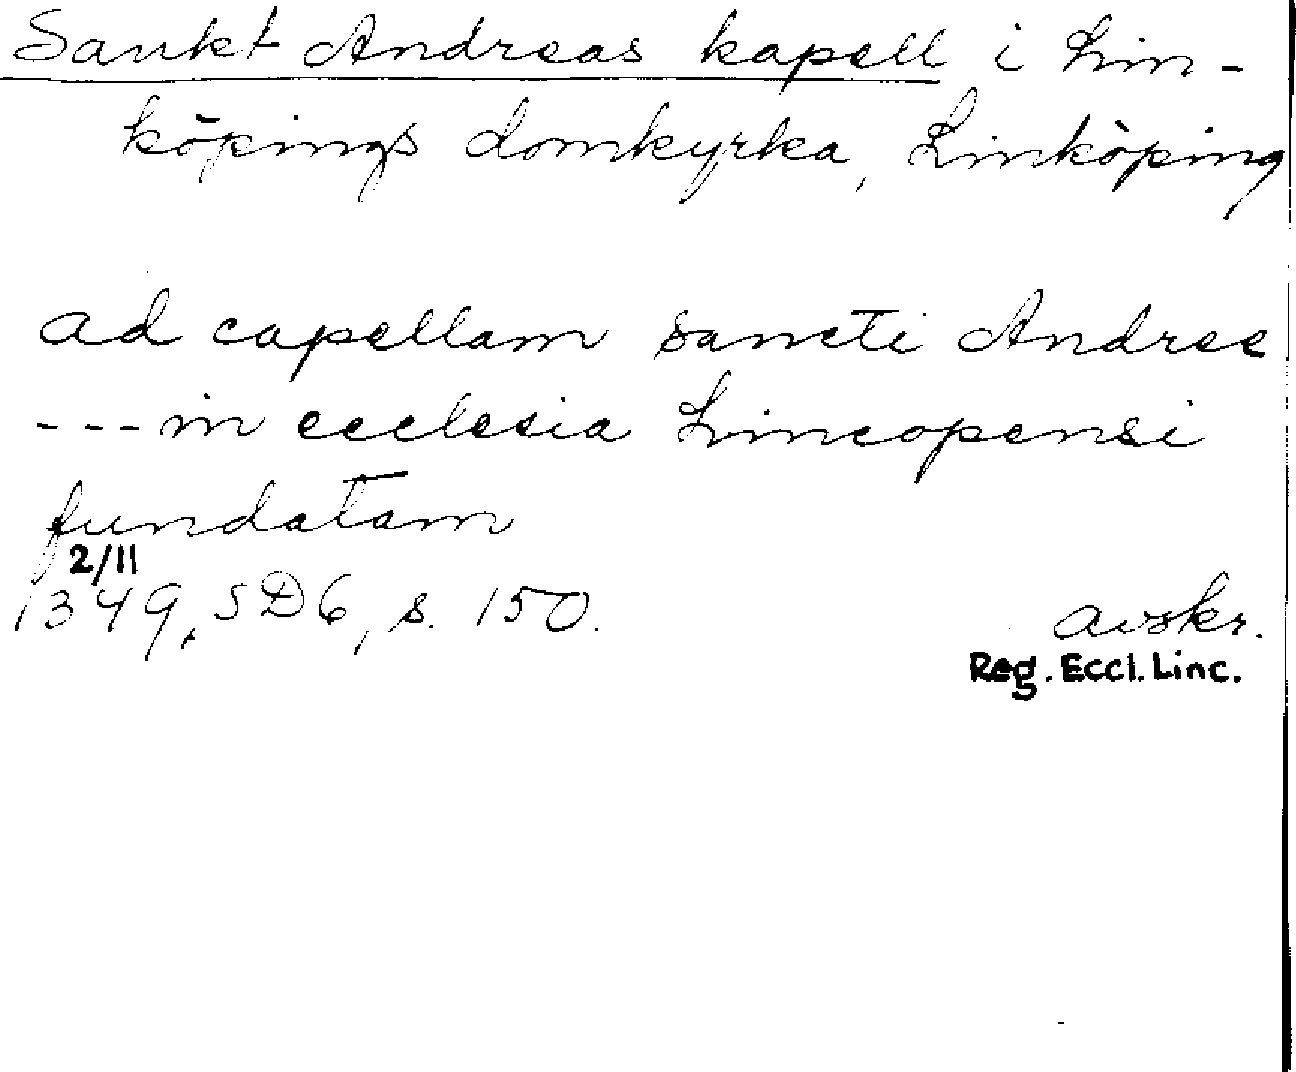 Sankt Andreas kapell i Lin-
köpings domkyrka, Linköping
ad capellam sancti Andree
--- in ecclesia Lincopensi
fundatam
2/11
1349, SD6, s. 150.
avskr.
Reg. Eccl. Linc.